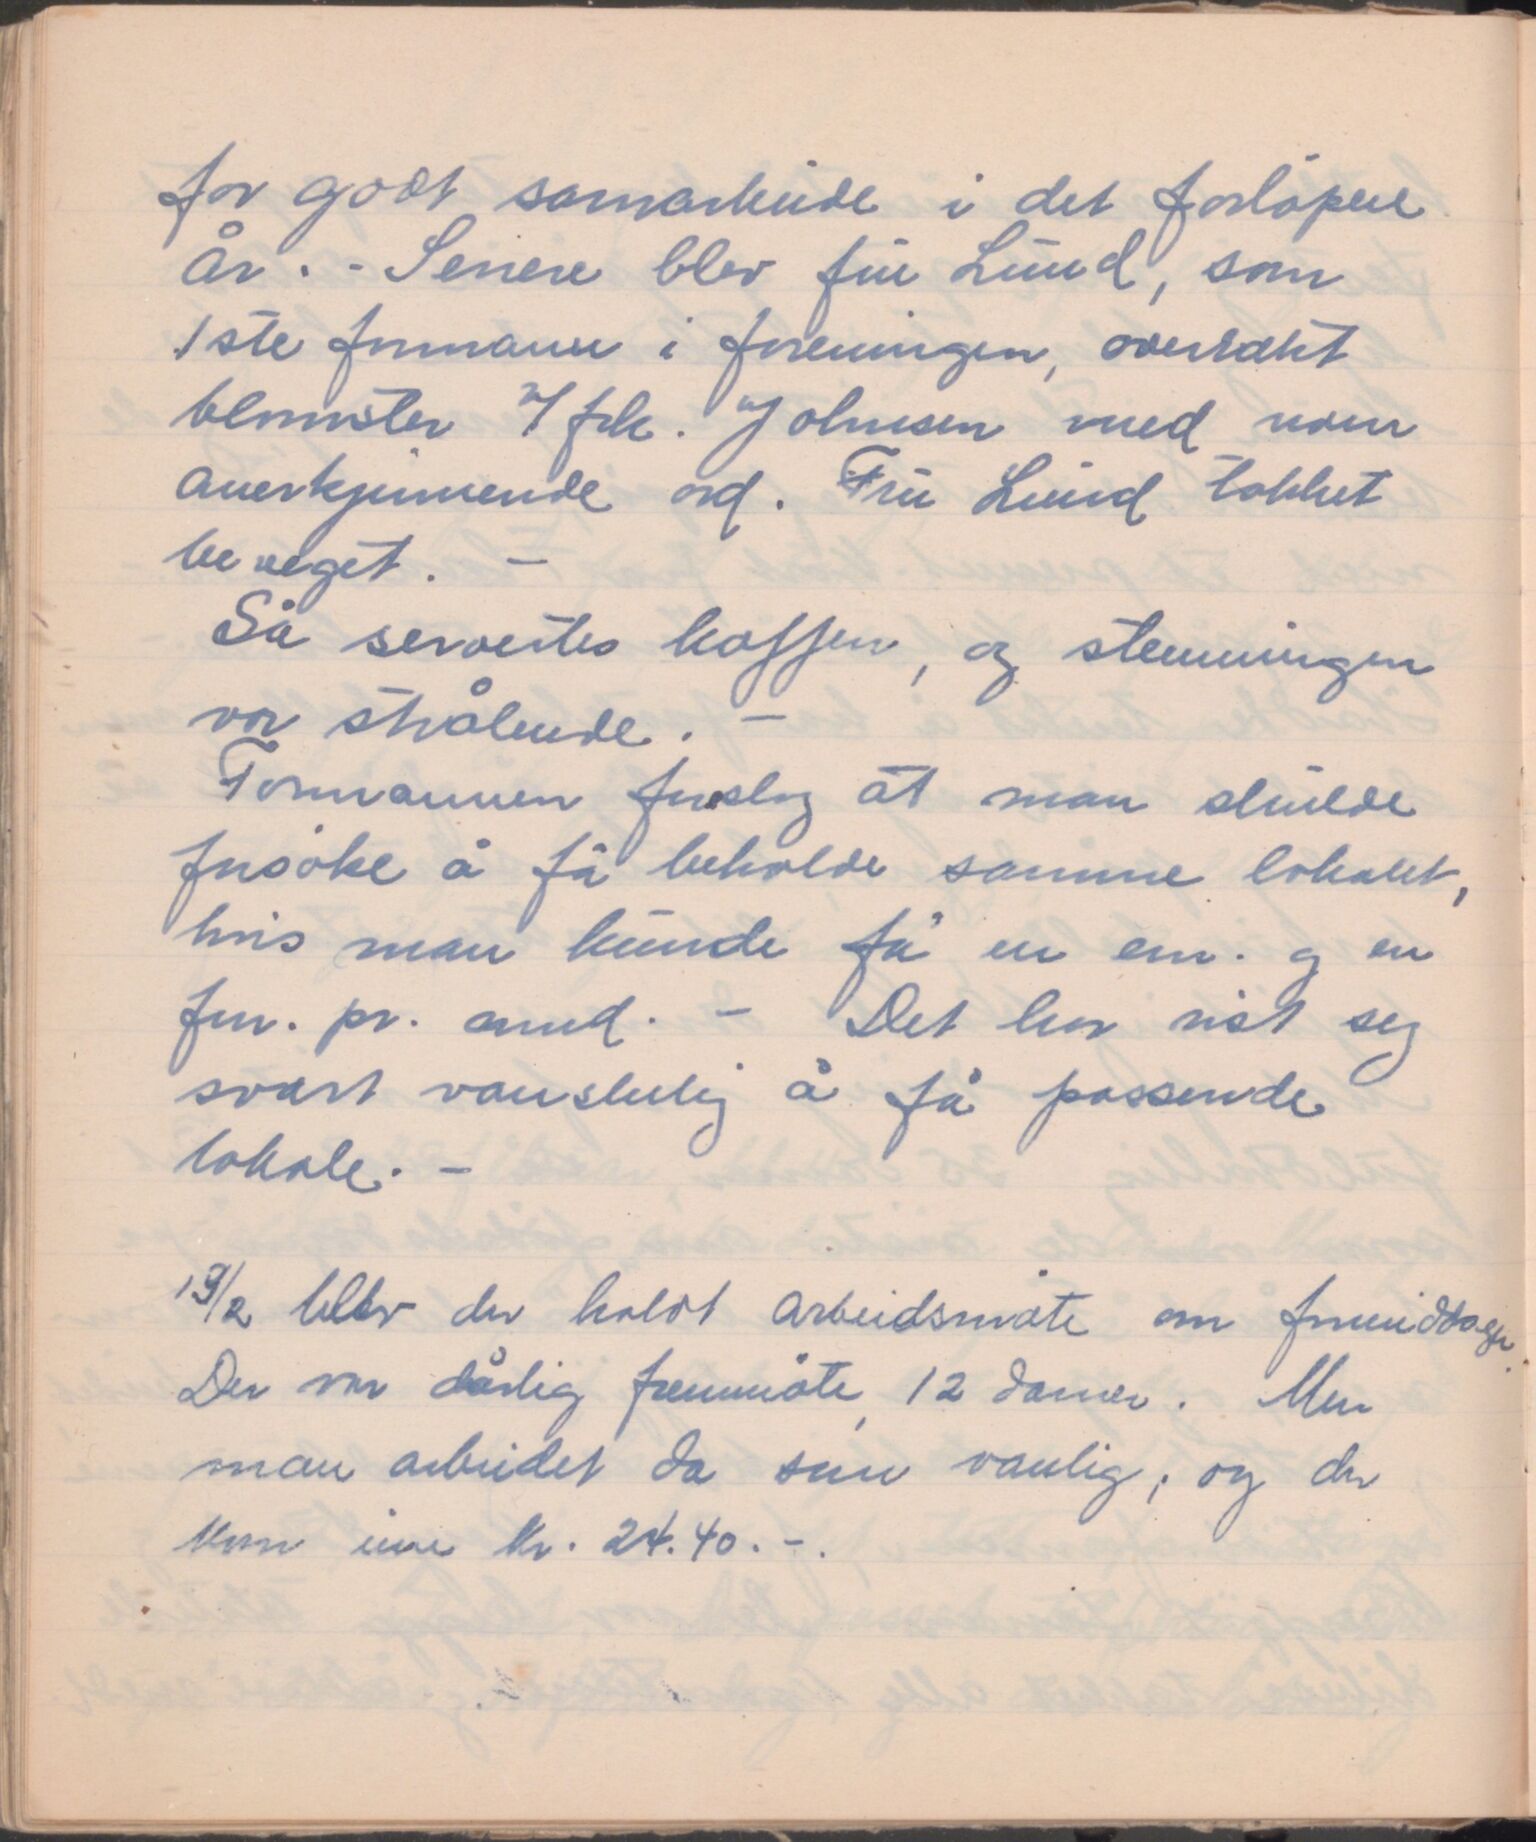 for godt samarbeide i det forløpne
år. - Senere blev frü Lünd, som
1ste formann i foreningen, overrakt
blomster v/ frk. Johnsen med noen
anerkjennende ord. Frü Lünd takket
beveget. -
Så servertes kaffen, og stemningen
var strålende. -
Formannen foreslog at man skülde
forsøke å få beholde samme lokalet,
hvis man künde få en em. og en
fm. pr. mnd. - Det har vist seg
svært vanskelig å få passende
lokale. -
19/2 blev der holdt arbeidsmøte om formiddagen.
Der var dårlig fremmøte, 12 damer. Men
man arbeidet da som vanlig, og der
kom inn kr. 24.40. -.